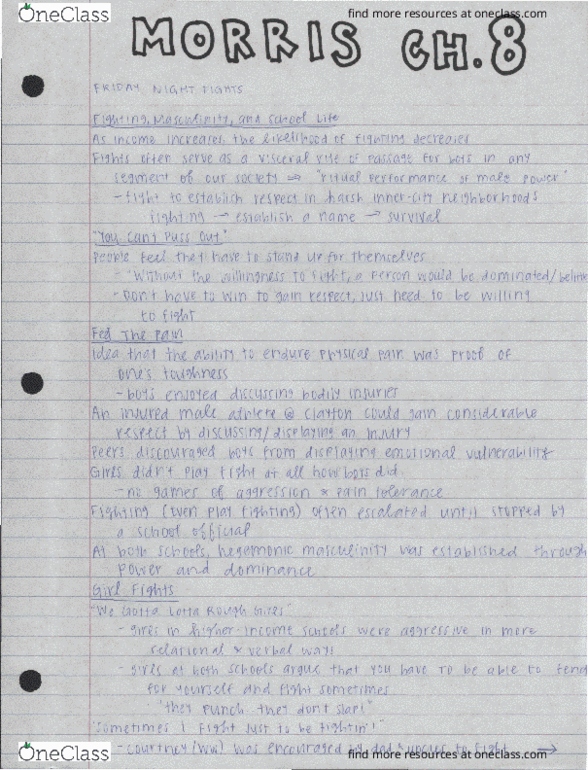 OneClass
find more resources at oneclass.com
MORRIS CH.8
FRIDAY NIGHT FIGHTS
Fighting, Masculinity, and School Life
As income increases the likelihood of fighting decreases
Fights often serve as a visceral rite of passage for boys in any
segment of our society → "ritual performance of male power"
- fight to establish respect in harsh inner-city neighborhoods
fighting → establish a name → survival
"You Can't Puss Out"
People feel they have to stand up for themselves
- "Without the willingness to fight, a person would be dominated/
- Don't have to win to gain respect, just need to be willing
to fight
Feel The Pain
Idea that the ability to endure physical pain was proof of
one's toughness
- boys enjoyed discussing bodily injuries
An injured male athlete @ Clayton could gain considerable
respect by discussing/displaying an injury
Peers discouraged boys from displaying emotional vulnerability
Girls didn't play fight at all how boys did
- no games of aggression & pain tolerance
Fighting (even play fighting) often escalated until stopped by
a school official
At both schools, hegemonic masculinity was established through
power and dominance
Girl Fights
"We Gotta Lotta Rough Girls"
- girls in higher-income schools were aggressive in more
relational & verbal ways
- girls at both schools argue that you have to be able to fend
for yourself and fight sometimes
"they punch they don't slap!"
"Sometimes I Fight Just to be Fightin'!"
- Courtney (WW) was encouraged by dad & uncles to fight →
OneClass
find more resources at oneclass.com